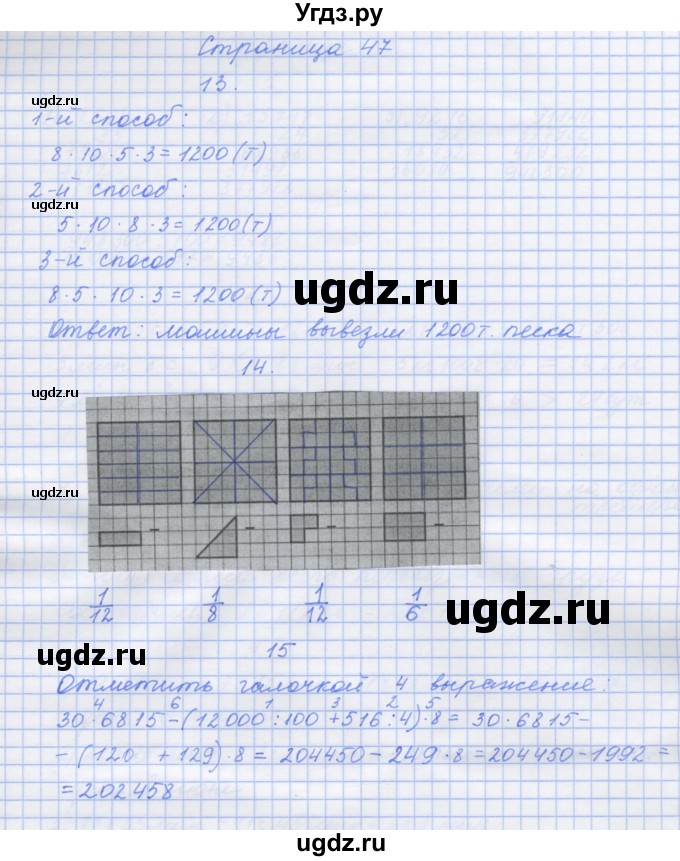 Угдз.ру
Страница 47
13.
ugdz.ru
1-й способ:
8·10·5·3=1200(т)
2-й способ:
ugdz.ru
5·10·8·3=1200(т)
3-й способ:
8·5·10·3=1200(т)
ugdz.ru
Ответ: машины вывезли 1200т. песка
14.
ugdz.ru
ugdz.ru
- - - -
1/12 1/8 1/12 1/6
ugdz.ru
15
ugdz.ru
Отметить галочкой 4 выражение:
4 6 1 3 2 5
30·6815-(12000:100+516:4)·8= 30·6815-
-(120 +129)·8= 204450-249·8=204450-1992=
=202458
ugdz.ru
ugdz.ru